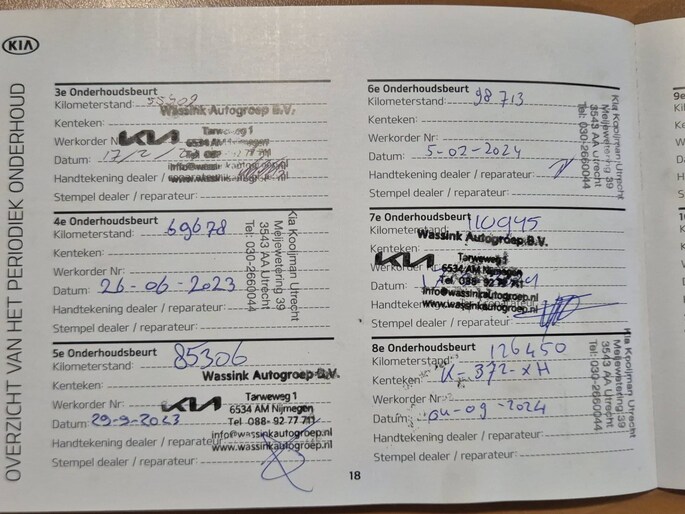 KIA
OVERZICHT VAN HET PERIODIEK ONDERHOUD
3e Onderhoudsbeurt
Kilometerstand:
Wassink Autogroep B.V.
Kenteken:
Tarweweg 1
Werkorder Nr:
KIA
6534 AM Nijmegen
Datum: 17/2/
Handtekening dealer / reparateur:
Stempel dealer / reparateur:
4e Onderhoudsbeurt
Kilometerstand: 69678
Kenteken:
Werkorder Nr:
Datum: 26-06-2023
Handtekening dealer / reparateur:
Stempel dealer / reparateur:
Kia Kooijman Utrecht
Meijewetering 39
3543 AA Utrecht
Tel: 030-2660044
5e Onderhoudsbeurt
Kilometerstand: 85306
Wassink Autogroep B.V.
Kenteken:
Tarweweg 1
Werkorder Nr:
KIA
6534 AM Nijmegen
Datum: 29-9-2023
Tel 088- 92 77 711
info@wassinkautogroep.nl
Handtekening dealer / reparateur:
www.wassinkautogroep.nl
Stempel dealer / reparateur:
6e Onderhoudsbeurt
Kilometerstand: 98713
Kenteken:
Werkorder Nr:
Datum: 5-02-2024
Handtekening dealer / reparateur:
Stempel dealer / reparateur:
Kia Kooijman Utrecht
Meijewetering 39
3543 AA Utrecht
Tel: 030-2660044
7e Onderhoudsbeurt
Kilometerstand: 110945
Wassink Autogroep B.V.
Kenteken:
Tarweweg 1
Werkorder Nr:
KIA
6534 AM Nijmegen
Tel 088- 92 77 711
Datum:
info@wassinkautogroep.nl
www.wassinkautogroep.nl
Stempel dealer / reparateur:
8e Onderhoudsbeurt
Kilometerstand: 126450
Kenteken: K-372-XH
Werkorder Nr:
Datum: 04-09-2024
Handtekening dealer / reparateur:
Stempel dealer / reparateur:
Kia Kooijman Utrecht
Meijewetering 39
3543 AA Utrecht
Tel: 030-2660044
18